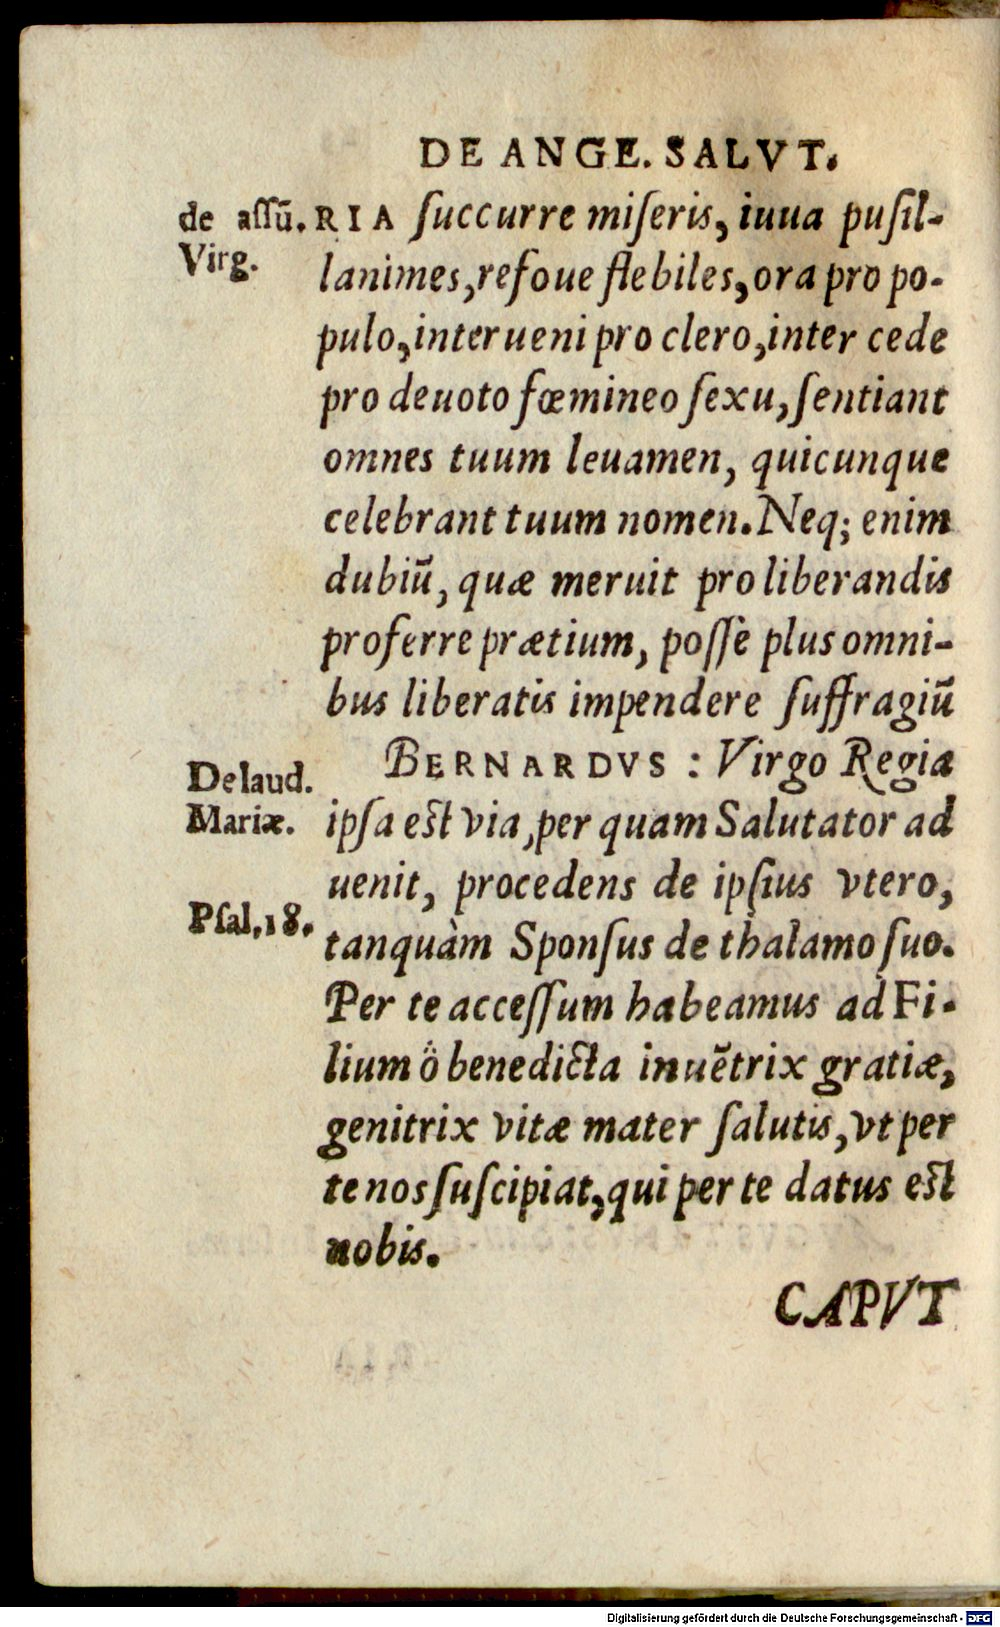 DE ANGE. SALVT.
de assū.
Virg.
RIA ſuccurre miſeris, iuua puſil-
lanimes, refoue flebiles, ora pro po-
pulo, interueni pro clero, inter cede
pro deuoto fœmineo ſexu, ſentiant
omnes tuum leuamen, quicunque
celebrant tuum nomen. Neq; enim
dubiū, quæ meruit pro liberandis
proferre prætium, poſſè plus omni-
bus liberatis impendere ſuffragiū
De laud.
Mariæ.
BERNARDVS : Virgo Regia
ipſa est via, per quam Salutator ad
uenit, procedens de ipſius vtero,
Pſal. 18.
tanquàm Sponſus de thalamo ſuo.
Per te acceſſum habeamus ad Fi-
lium ô benedicta inuētrix gratiæ,
genitrix vitæ mater ſalutis, vt per
te nos ſuſcipiat, qui per te datus est
nobis.
CAPVT
Digitalisierung gefördert durch die Deutsche Forschungsgemeinschaft - DFG